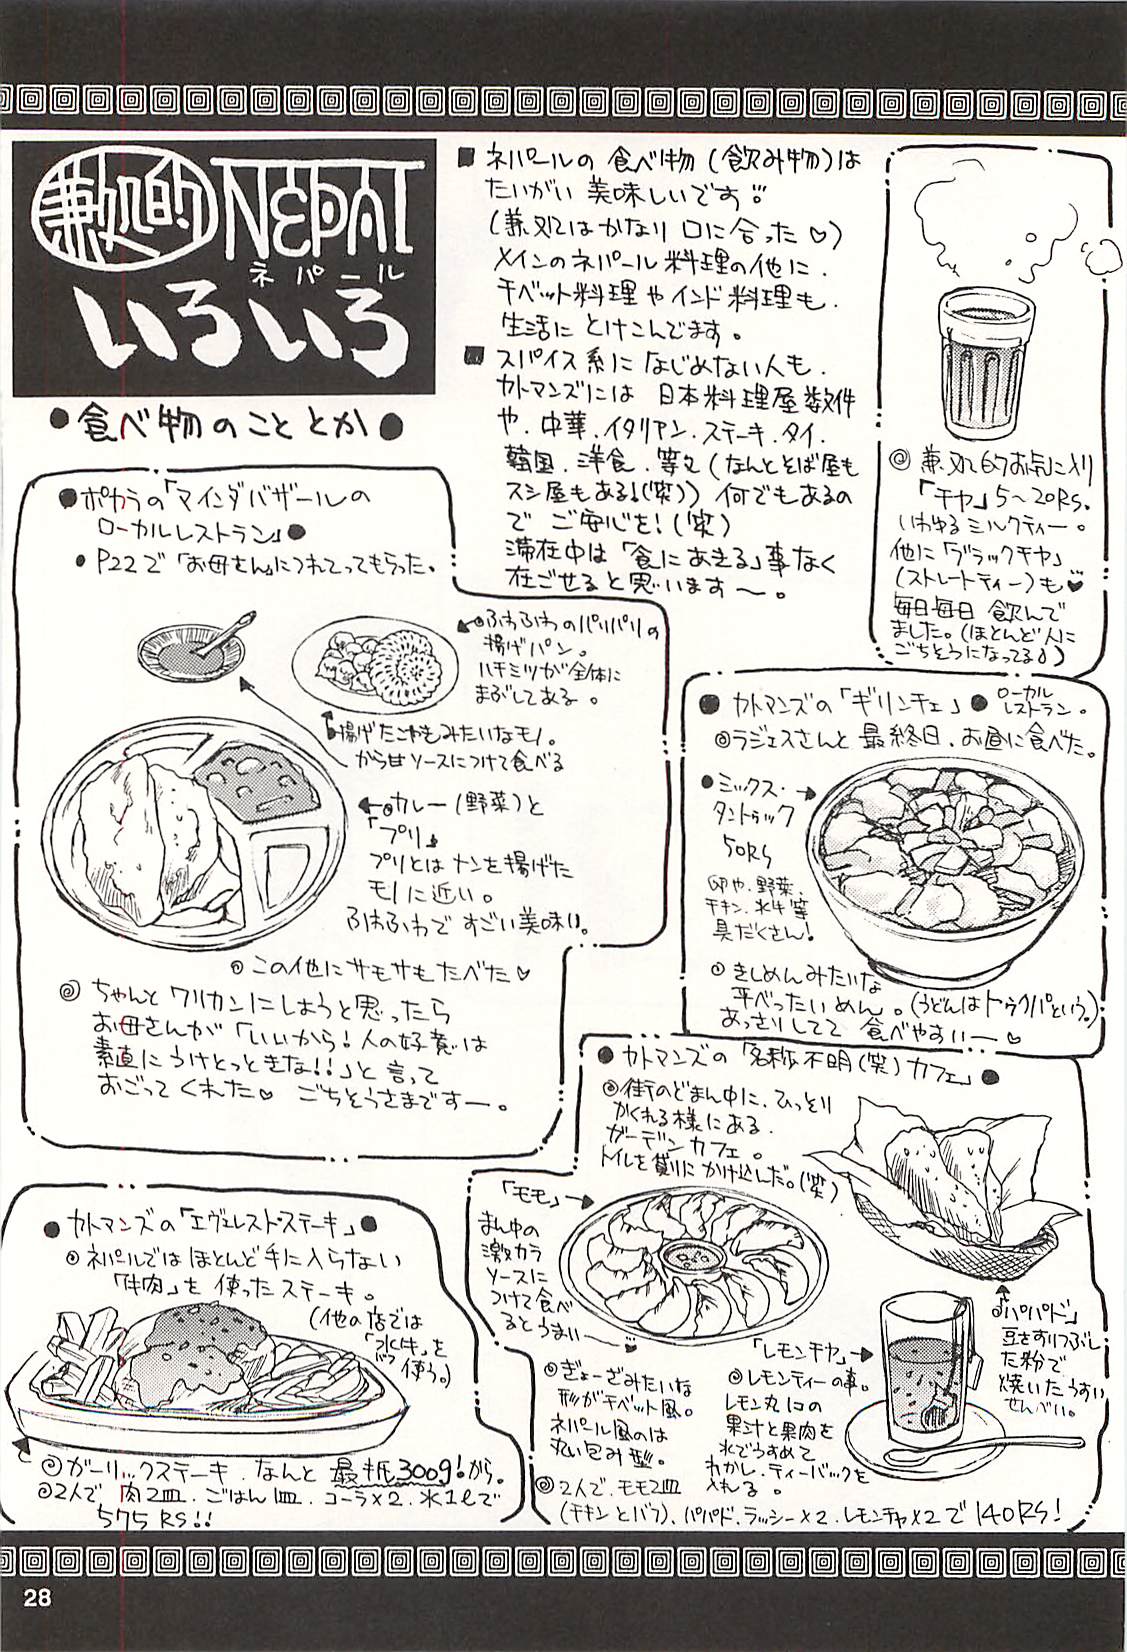 兼処的
NEPAL
ネパール
いろいろ
●食べ物のこととか●
■ネパールの食べ物(飲み物)は
たいがい美味しいです!!
(兼処はかなり口に合った♡)
メインのネパール料理の他に、
チベット料理やインド料理も、
生活にとけこんでます。
■スパイス系になじめない人も、
カトマンズには日本料理屋数件
や、中華、イタリアン、ステーキ、タイ、
韓国、洋食、等々(なんとそば屋も
スシ屋もある!(笑))何でもあるの
でご安心を!(笑)
滞在中は「食にあきる」事なく
在ごせると思います〜。
◎兼処的お気に入り
「チヤ」5〜20RS.
いわゆるミルクティー。
他に「ブラックチヤ」
(ストレートティー)も♥
毎日毎日飲んで
ました。(ほとんど人に
ごちそうになってる!)
●ポカラの「マインダバザールの
ローカルレストラン」●
・P22で「お母さん」につれてってもらった。
ふわふわのパリパリの
揚げパン。
ハチミツが全体に
まぶしてある。
揚げたこやきみたいなモノ。
から甘ソースにつけて食べる
カレー(野菜)と
「プリ」
プリとはナンを揚げた
モノに近い。
ふわふわですごい美味い。
◎この他にサモサもたべた♡
◎ちゃんとワリカンにしようと思ったら
お母さんが「いいから!人の好意は
素直にうけとっときな!!」と言って
おごってくれた♡ごちそうさまですー。
●カトマンズの「ギリンチェ」●
ローカル
レストラン。
◎ラジェスさんと最終日、お昼に食べた。
●ミックス・
タントゥック
50RS
卵や、野菜、
チキン、水牛等
具だくさん!
◎きしめんみたいな
平べったいめん。(うどんはトゥクパという。)
あっさりしてて食べやすいー♡
●カトマンズの「名称不明(笑)カフェ」●
◎街のどまん中に、ひっそり
かくれる様にある、
ガーデンカフェ。
トイレを借りにかけ込んだ。(笑)
「モモ」→
まん中の
激カラ
ソースに
つけて食べ
るとうまい〜♥
◎ぎょーざみたいな
形がチベット風。
ネパール風のは
丸い包み型。
「パパド」
豆をすりつぶし
た粉で
焼いたうすい
せんべい。
「レモンチヤ」→
◎レモンティーの事。
レモン丸1コの
果汁と果肉を
水でうすめて
わかし、ティーバックを
入れる。
◎2人で、モモ2皿
(チキンとバフ)、パパド、ラッシー×2、レモンチヤ×2で140RS!
●カトマンズの「エヴェレストステーキ」●
◎ネパールではほとんど手に入らない
「牛肉」を使ったステーキ。
(他の店では
「水牛」を
バフ
使う。)
◎ガーリックステーキ、なんと最低300g!から。
◎2人で肉2皿、ごはん1皿、コーラ×2、水1ℓで
575RS!!
28